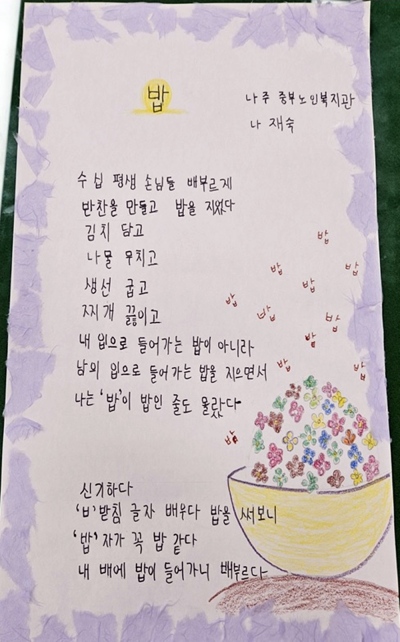 밥
나주 중부노인복지관
나 재숙
수십 평생 손님들 배부르게
반찬을 만들고 밥을 지었다
김치 담고
나물 무치고
생선 굽고
찌개 끓이고
내 입으로 들어가는 밥이 아니라
남의 입으로 들어가는 밥을 지으면서
나는 '밥'이 밥인 줄도 몰랐다
신기하다
'ㅂ'받침 글자 배우다 밥을 써보니
'밥'자가 꼭 밥 같다
내 배에 밥이 들어가니 배부르다
밥
밥
밥
밥
밥
밥
밥
밥
밥
밥
밥
밥